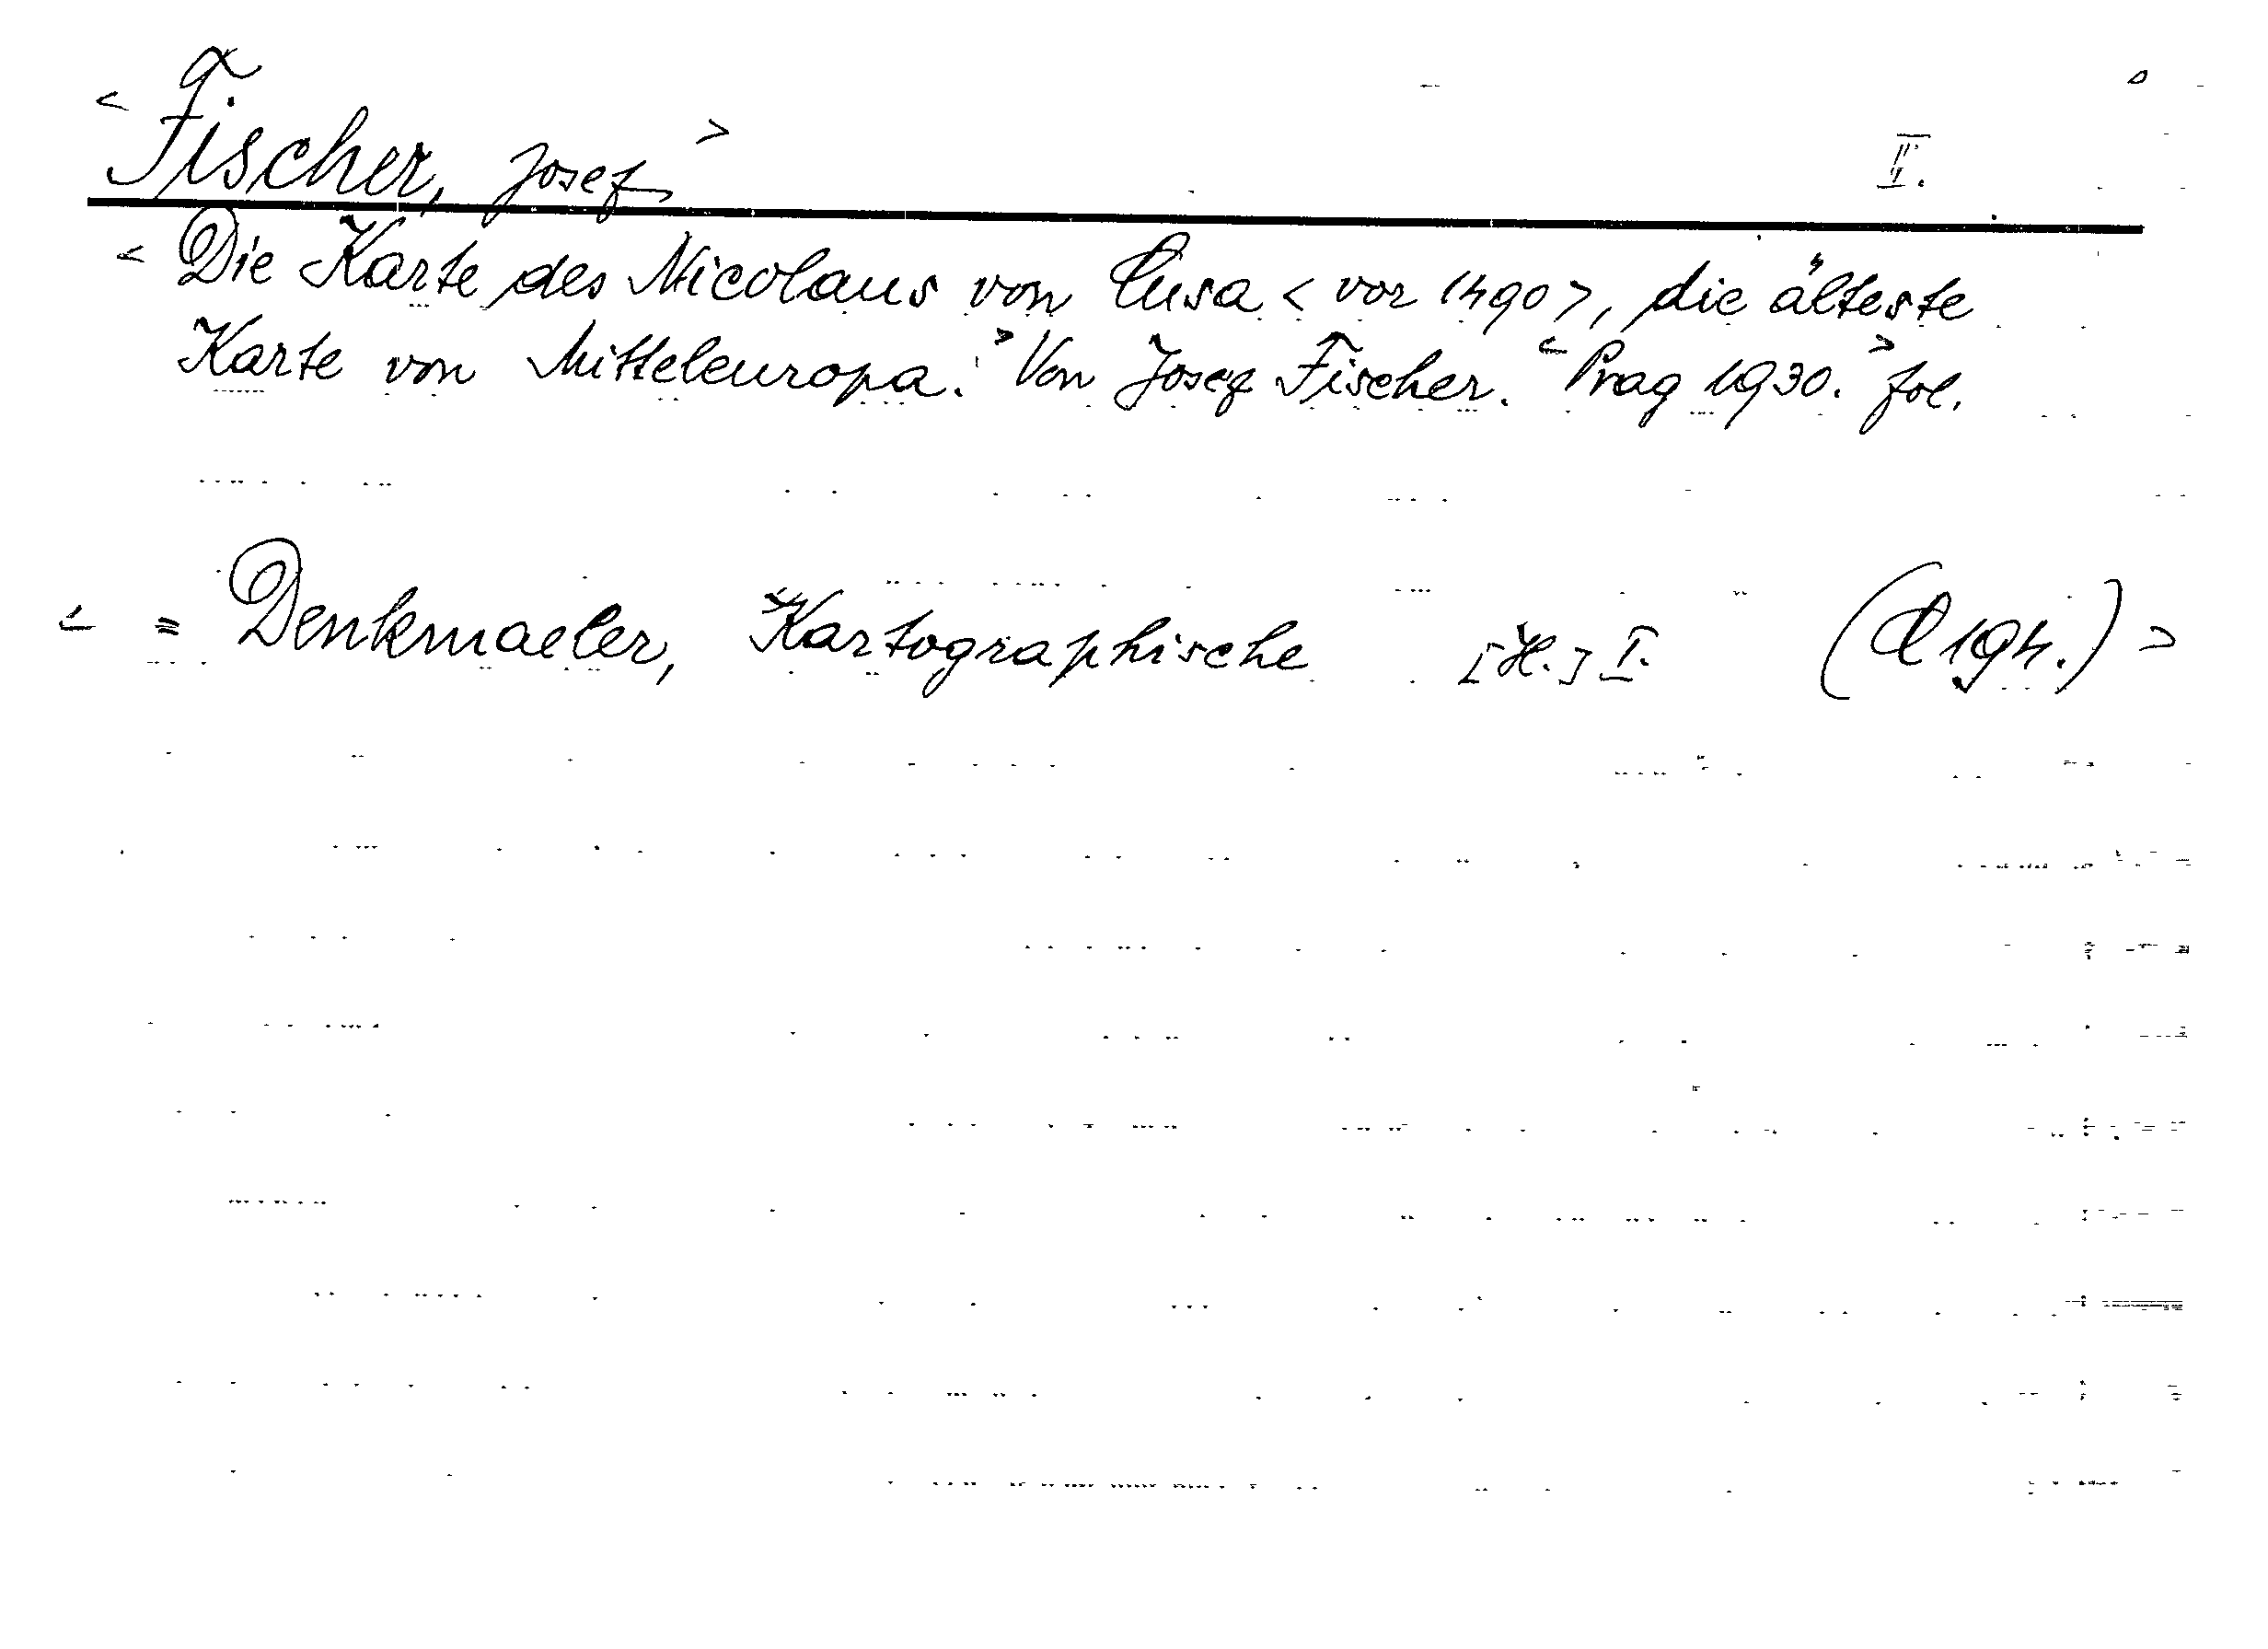 < Fischer, Josef > II.
< Die Karte des Nicolaus von Cusa < vor 1490 >, die älteste
Karte von Mitteleuropa. > Von Josef Fischer. < Prag 1930. > fol.
< = Denkmaeler, Kartographische [H.] I. >